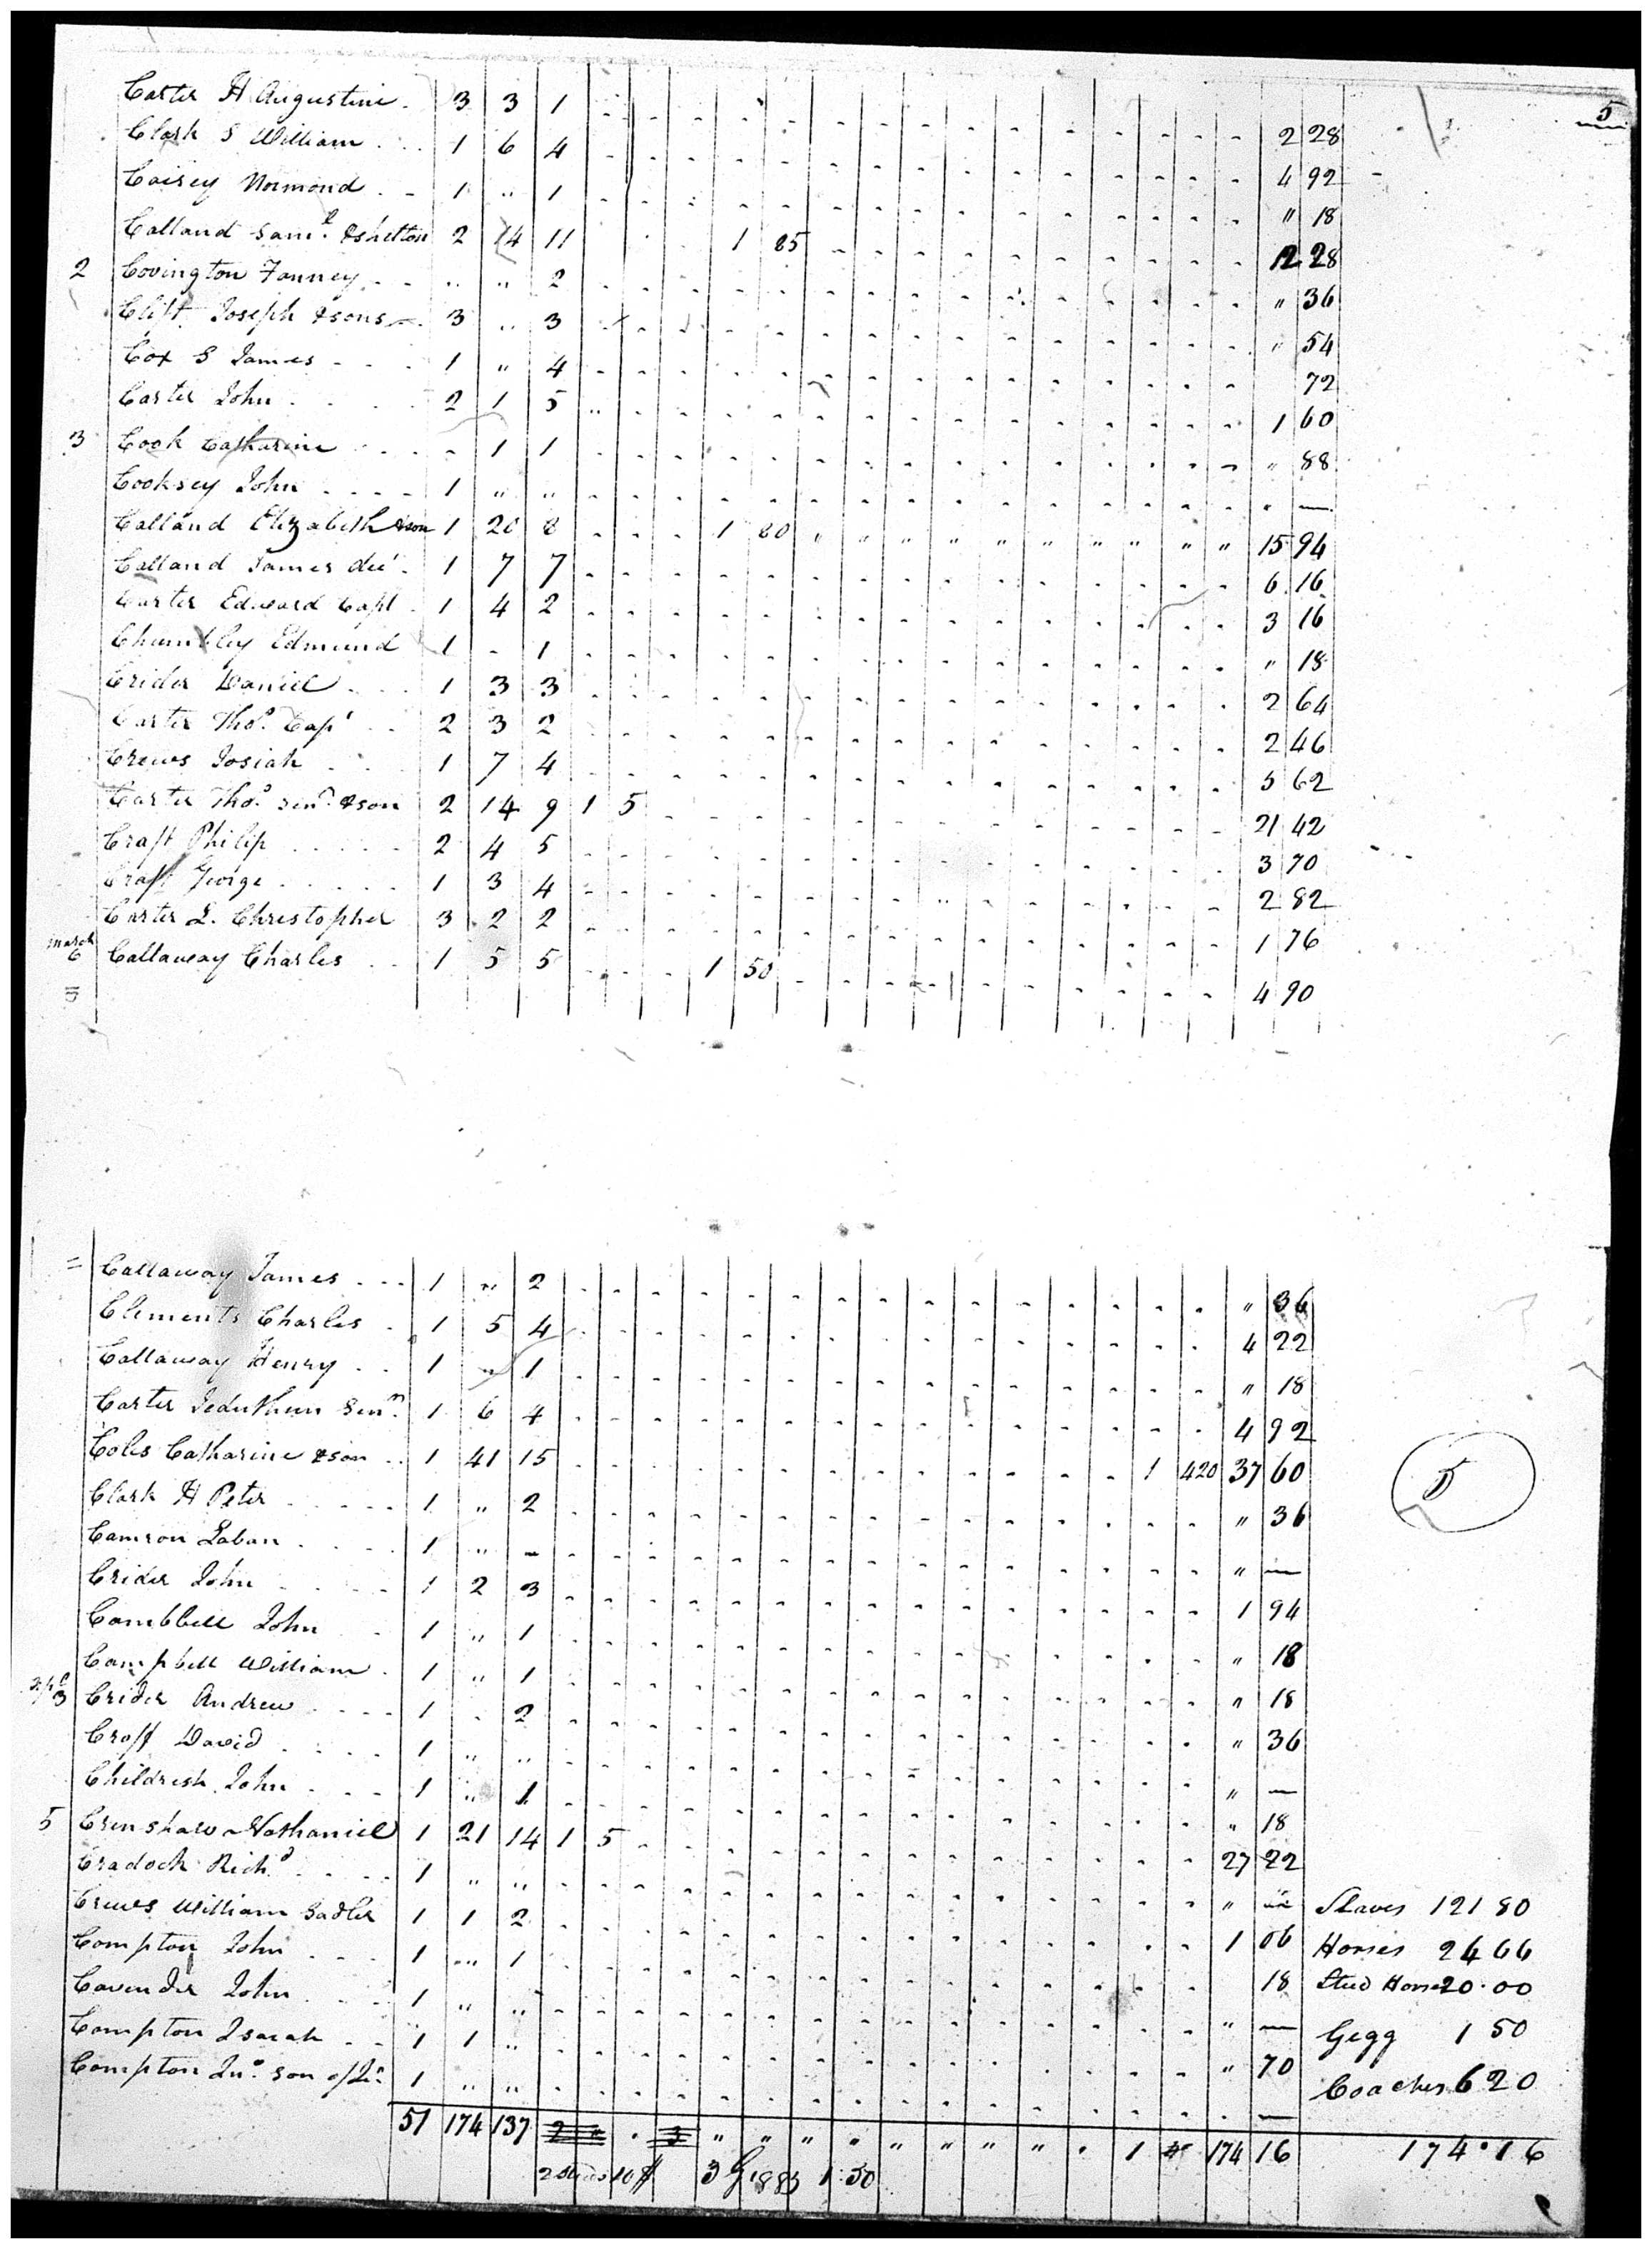 5
Carter H Augustine . 3 3 1 2 28
Clark S William . . 1 6 4 4 92
Caisey Normond . . 1 " 1 " 18
Calland Saml. & Shelton 2 14 11 1 85 12 28
2 Covington Fanney . . " " 2 " 36
Clift Joseph & sons 3 " 3 " 54
Cox S James . . . 1 " 4 72
Carter John . . . . 2 1 5 1 60
3 Cook Catharine . . . - 1 1 " 88
Cooksey John . . . . 1 " " " —
Calland Elizabeth & son 1 20 8 1 80 " " " " " " " " " " 15 94
Calland James 1 7 7 6 16
Carter Edward Capt . 1 4 2 3 16
Chumbley Edmund 1 - 1 " 18
Crider Daniel . . 1 3 3 2 64
Carter Thos. Capt . . 2 3 2 2 46
Crews Josiah . . . 1 7 4 5 62
Carter Thos. senr. & son 2 14 9 1 5 21 42
Craft Philip . . . . . 2 4 5 3 70
Craft George . . . . . 1 3 4 2 82
Carter L. Christopher 3 2 2 1 76
march
6 Callaway Charles . . 1 5 5 1 50 4 90
= Callaway James . . . 1 " 2 " 36
Clements Charles . 1 5 4 4 22
Callaway Henry . . 1 " 1 " 18
Carter Jeduthun Senr. 1 6 4 4 92
Coles Catharine & son . . 1 41 15 1 420 37 60
5
Clark H Peter . . . . . 1 " 2 " 36
Camron Laban . . . . 1 " - " —
Crider John . . . . 1 2 3 1 94
Cambbell John . . 1 " 1 " 18
Campbell William . 1 " 1 " 18
apl
3 Crider Andrew . . . . 1 . 2 " 36
Croff David . . . . 1 " " " —
Childrish John . . . 1 " 1 " 18
5 Crenshaw Nathaniel 1 21 14 1 5 27 22
Cradock Richd. . . . . 1 " " " —
Slaves 121 80
Crews William Sadler 1 1 2 1 06
Horses 24 66
Compton John . . . 1 " 1 18
Stud Horse 20.00
Cavender John . . . 1 " " " —
Gegg 1 50
Compton Isaiah . . 1 1 " " 70
Coaches 6 20
Compton Jno. son of Jno 1 " " —
51 174 137 2 . 3 " " " " " " " " . 1 174 16 174.16
2 Studs 10$ 3 G 1.50